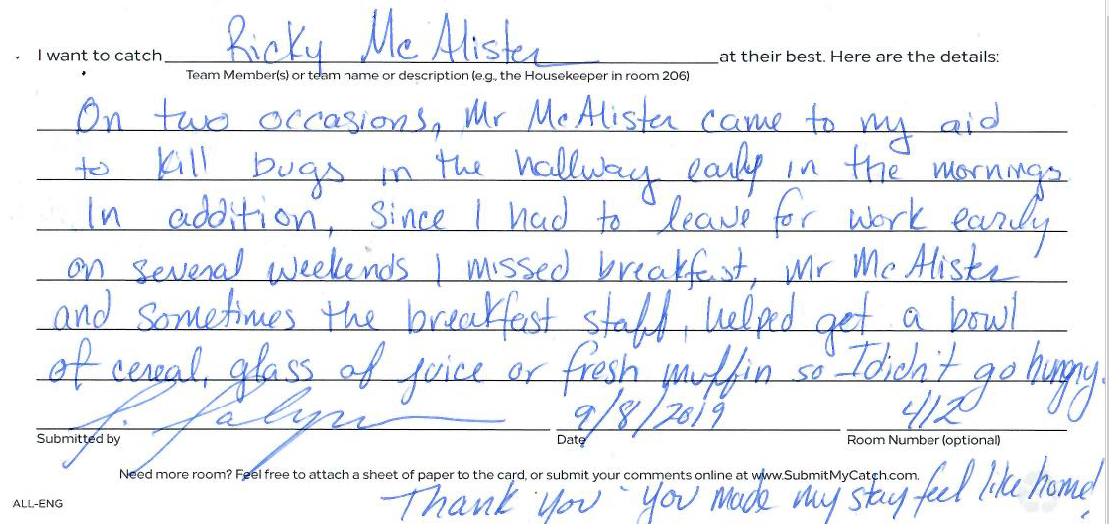 I want to catch Ricky McAlister at their best. Here are the details:
Team Member(s) or team name or description (e.g., the Housekeeper in room 206)
On two occasions, Mr McAlister came to my aid
to kill bugs in the hallway early in the mornings
In addition, since I had to leave for work early
on several weekends I missed breakfast, Mr McAlister
and sometimes the breakfast staff, helped get a bowl
of cereal, glass of juice or fresh muffin so I didn't go hungry.
9/8/2019 412
Submitted by Date Room Number (optional)
Need more room? Feel free to attach a sheet of paper to the card, or submit your comments online at www.SubmitMyCatch.com.
ALL-ENG
Thank you - you made my stay feel like home!